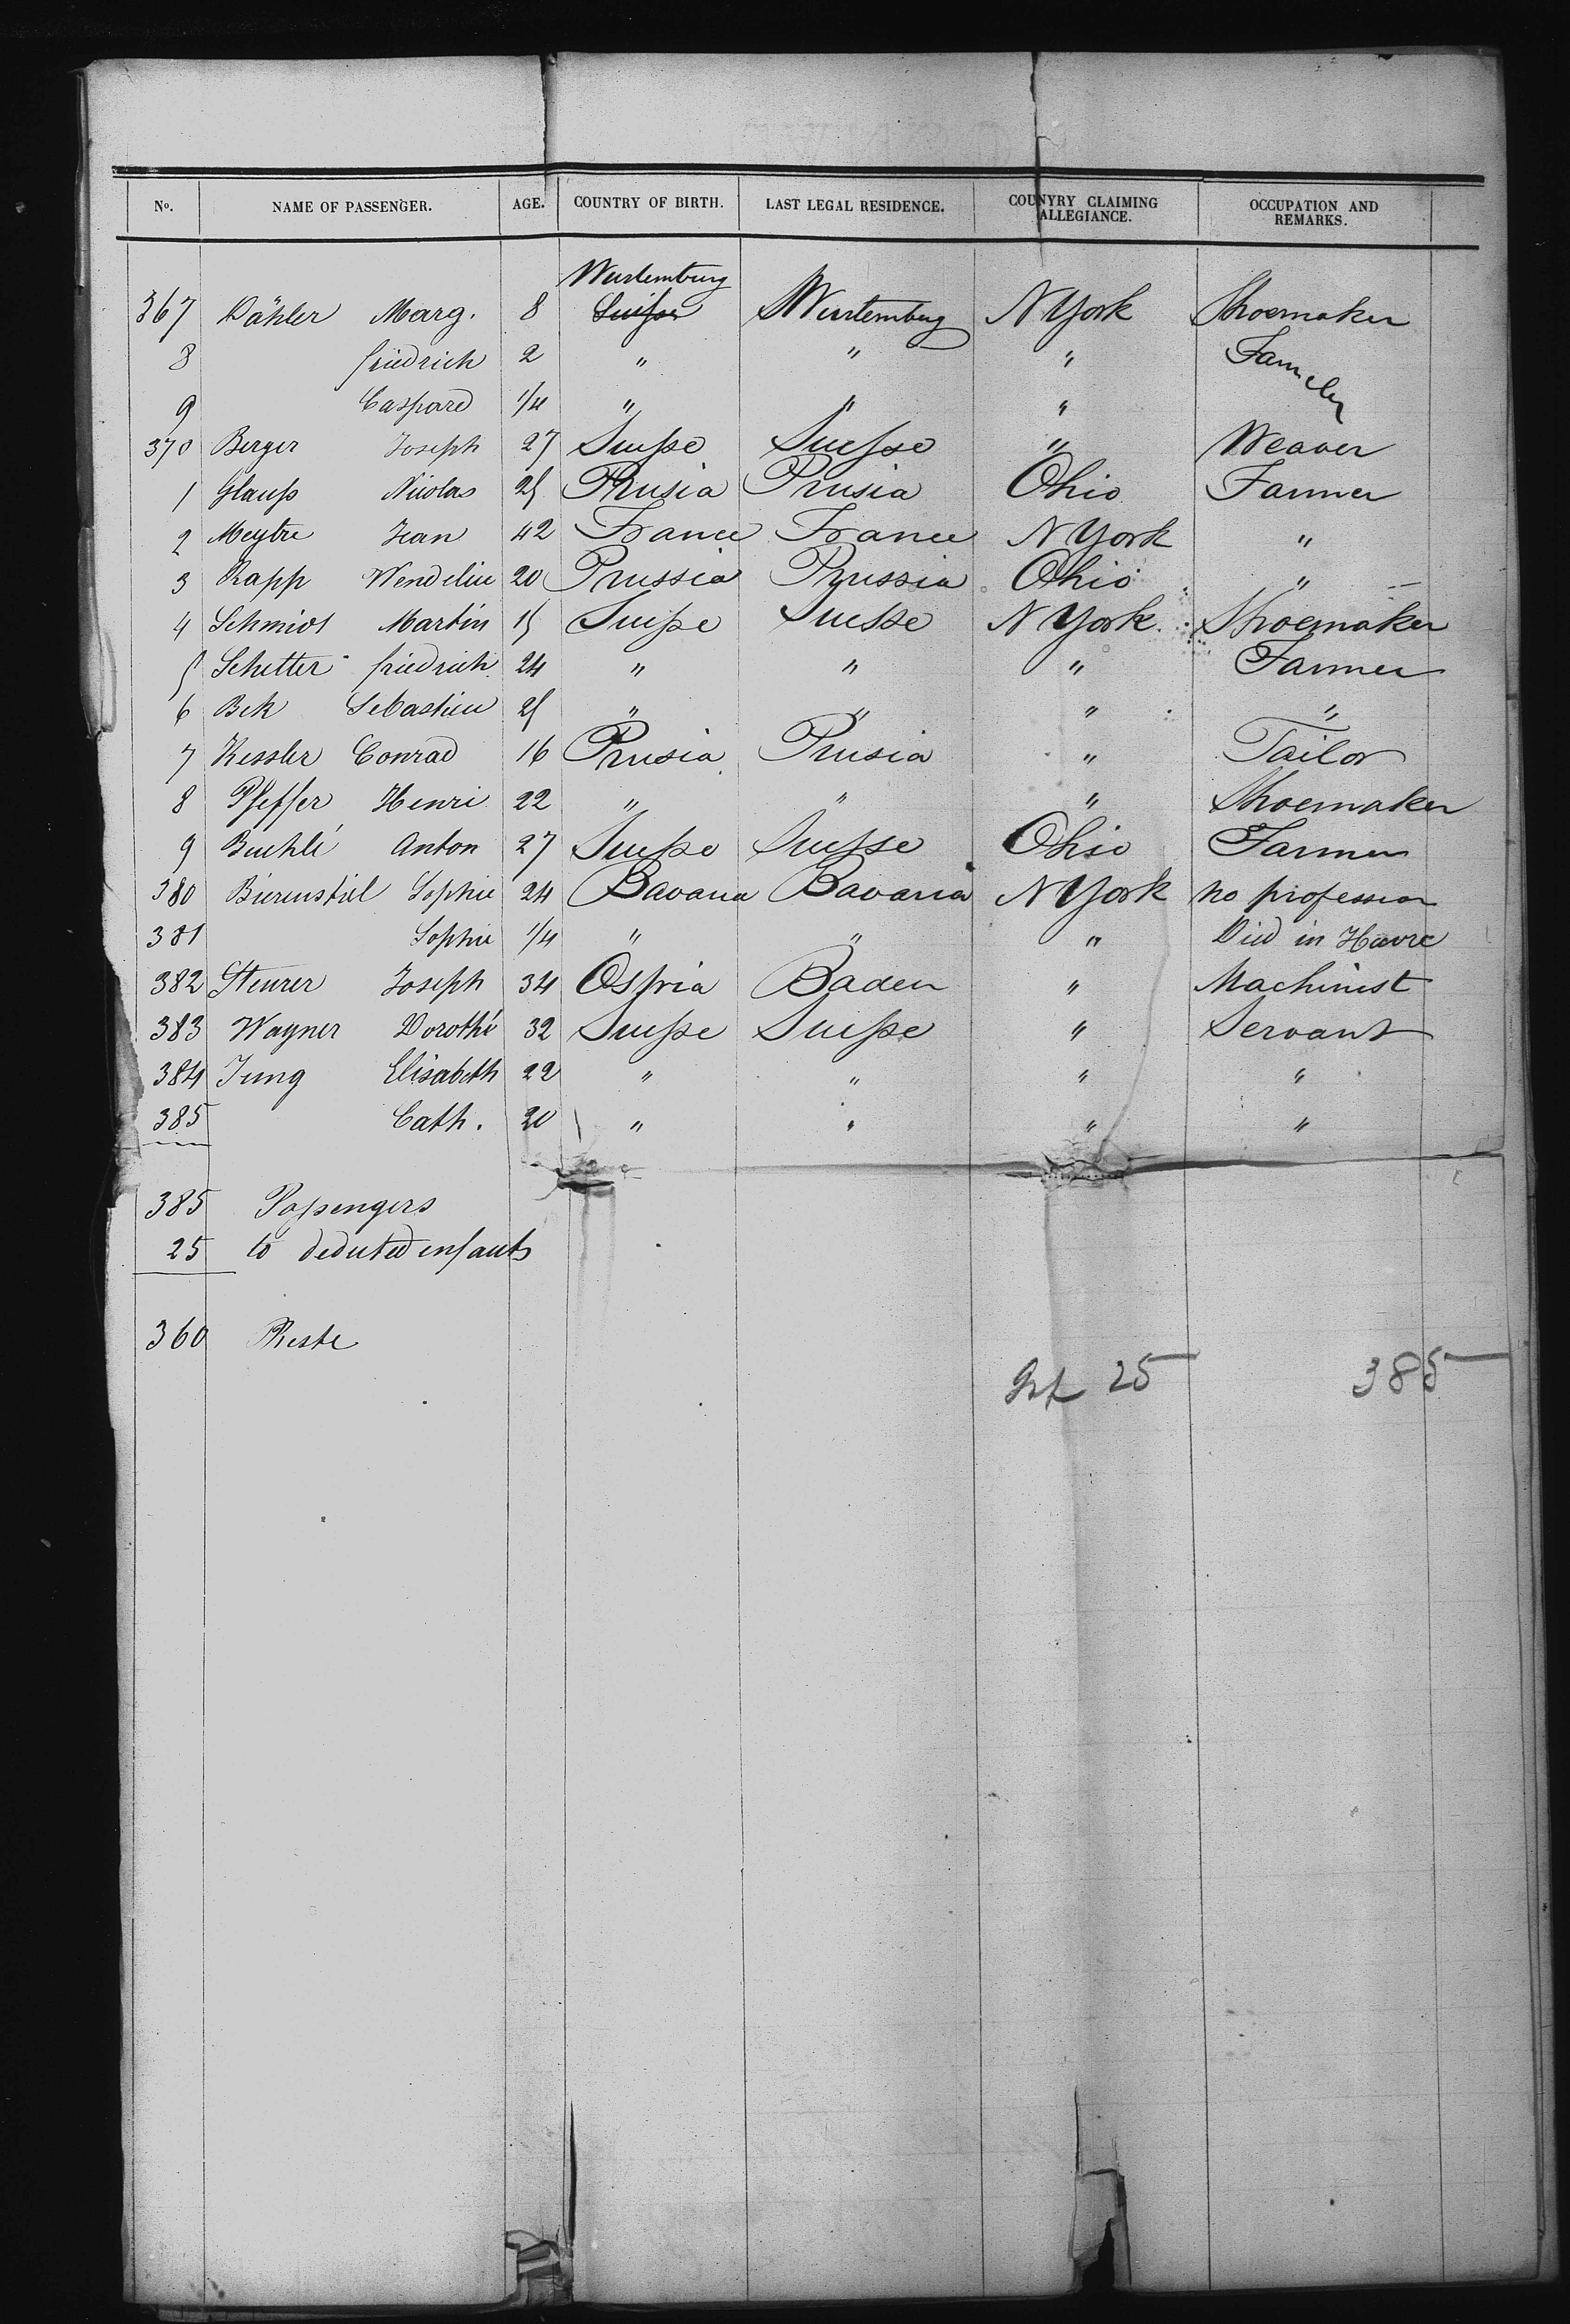 No. NAME OF PASSENGER. AGE. COUNTRY OF BIRTH. LAST LEGAL RESIDENCE. COUNYRY CLAIMING ALLEGIANCE. OCCUPATION AND REMARKS.
Wurtemburg
367 Dähler Marg. 8 Suisse Wurtemburg N York Shoemaker
8 friedrich 2 " " " Famely
9 Caspard 1/4 " " "
370 Berger Joseph 27 Suisse Suisse " Weaver
1 Glauss Nicolas 25 Prusia Prusia Ohio Farmer
2 Meytre Jean 42 France France N York "
3 Rapp Wendelin 20 Prussia Prussia Ohio "
4 Schmidt Martin 15 Suisse Suisse N York Shoemaker
5 Schetter friedrich 24 " " " Farmer
6 Bek Sebastien 25 " " " "
7 Kessler Conrad 16 Prusia Prusia " Tailor
8 Pfeffer Henri 22 " " " Shoemaker
9 Buehlé Anton 27 Suisse Suisse Ohio Farmer
380 Bierenstiel Sophie 24 Bavaria Bavaria N York no profession
381 Sophie 1/4 " " " Died in Havre
382 Steurer Joseph 34 Ostria Baden " Machinist
383 Wagner Dorothé 32 Suisse Suisse " Servant
384 Jung Elisabeth 22 " " " "
385 Cath. 20 " " " "
385 Passengers
25 to deduted infants
360 Reste
Inf 25 385